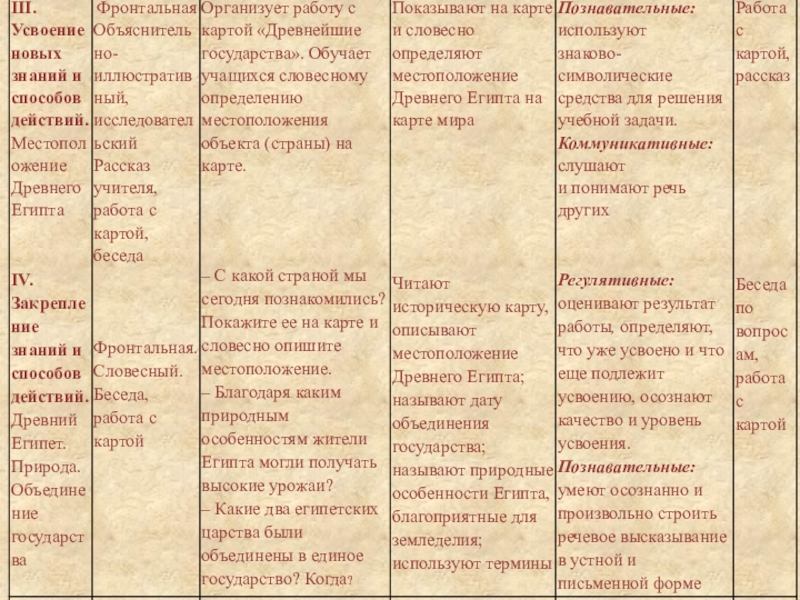 III.
Усвоение
новых
знаний и
способов
действий.
Местопол
ожение
Древнего
Египта
Фронтальная
Объяснитель
но-
иллюстратив
ный,
исследовател
ьский
Рассказ
учителя,
работа с
картой,
беседа
Организует работу с
картой «Древнейшие
государства». Обучает
учащихся словесному
определению
местоположения
объекта (страны) на
карте.
Показывают на карте
и словесно
определяют
местоположение
Древнего Египта на
карте мира
Познавательные:
используют
знаково-
символические
средства для решения
учебной задачи.
Коммуникативные:
слушают
и понимают речь
других
Работа
с
картой,
рассказ
IV.
Закрепле
ние
знаний и
способов
действий.
Древний
Египет.
Природа.
Объедине
ние
государст
ва
Фронтальная.
Словесный.
Беседа,
работа с
картой
– С какой страной мы
сегодня познакомились?
Покажите ее на карте и
словесно опишите
местоположение.
– Благодаря каким
природным
особенностям жители
Египта могли получать
высокие урожаи?
– Какие два египетских
царства были
объединены в единое
государство? Когда?
Читают
историческую карту,
описывают
местоположение
Древнего Египта;
называют дату
объединения
государства;
называют природные
особенности Египта,
благоприятные для
земледелия;
используют термины
Регулятивные:
оценивают результат
работы, определяют,
что уже усвоено и что
еще подлежит
усвоению, осознают
качество и уровень
усвоения.
Познавательные:
умеют осознанно и
произвольно строить
речевое высказывание
в устной и
письменной форме
Беседа
по
вопрос
ам,
работа
с
картой